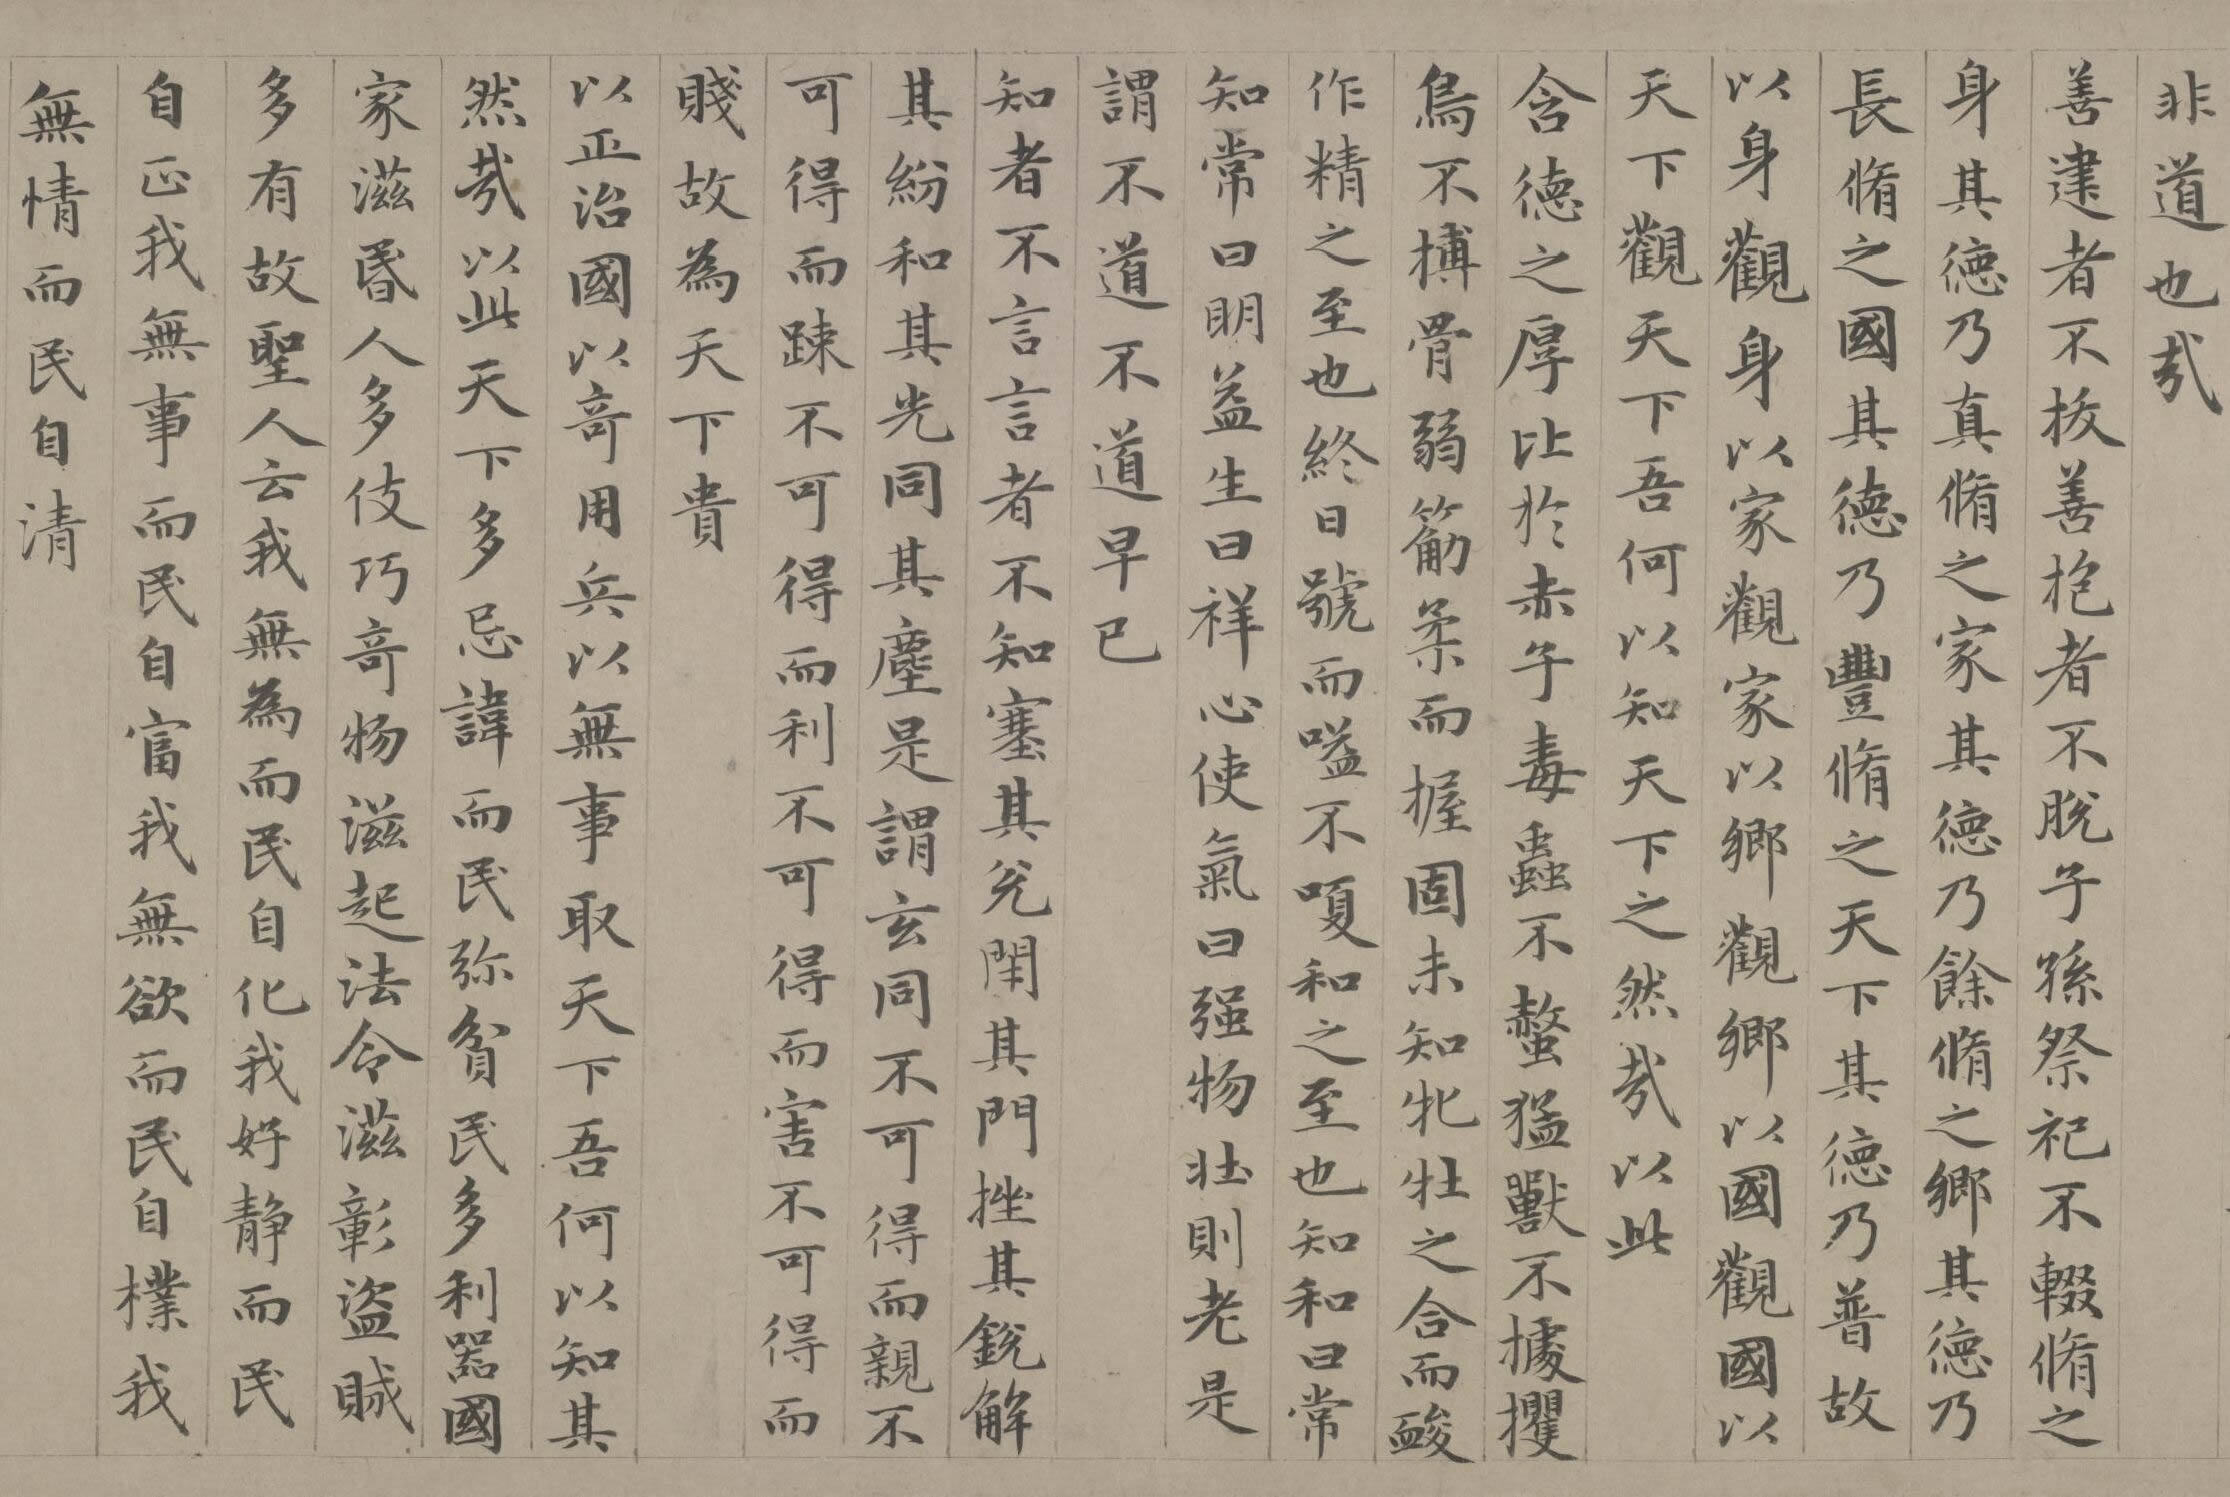 非道也㢤
善建者不拔善抱者不脫子孫祭祀不輟脩之
身其德乃真脩之家其德乃餘脩之鄉其德乃
長脩之國其德乃豐脩之天下其德乃普故
以身觀身以家觀家以鄉觀鄉以國觀國以
天下觀天下吾何以知天下之然㢤以此
含德之厚比於赤子毒蟲不螫猛獸不據攫
鳥不搏骨弱筋柔而握固未知牝牡之合而酸
作精之至也終日號而嗌不嗄和之至也知和曰常
知常曰明益生曰祥心使氣曰强物壯則老是
謂不道不道早已
知者不言言者不知塞其兌閇其門挫其銳解
其紛和其光同其塵是謂玄同不可得而親不
可得而踈不可得而利不可得而害不可得而
賤故為天下貴
以正治國以竒用兵以無事取天下吾何以知其
然㢤以此天下多忌諱而民弥貧民多利器國
家滋昬人多伎巧竒物滋起法令滋彰盜賊
多有故聖人云我無為而民自化我好静而民
自正我無事而民自富我無欲而民自樸我
無情而民自清